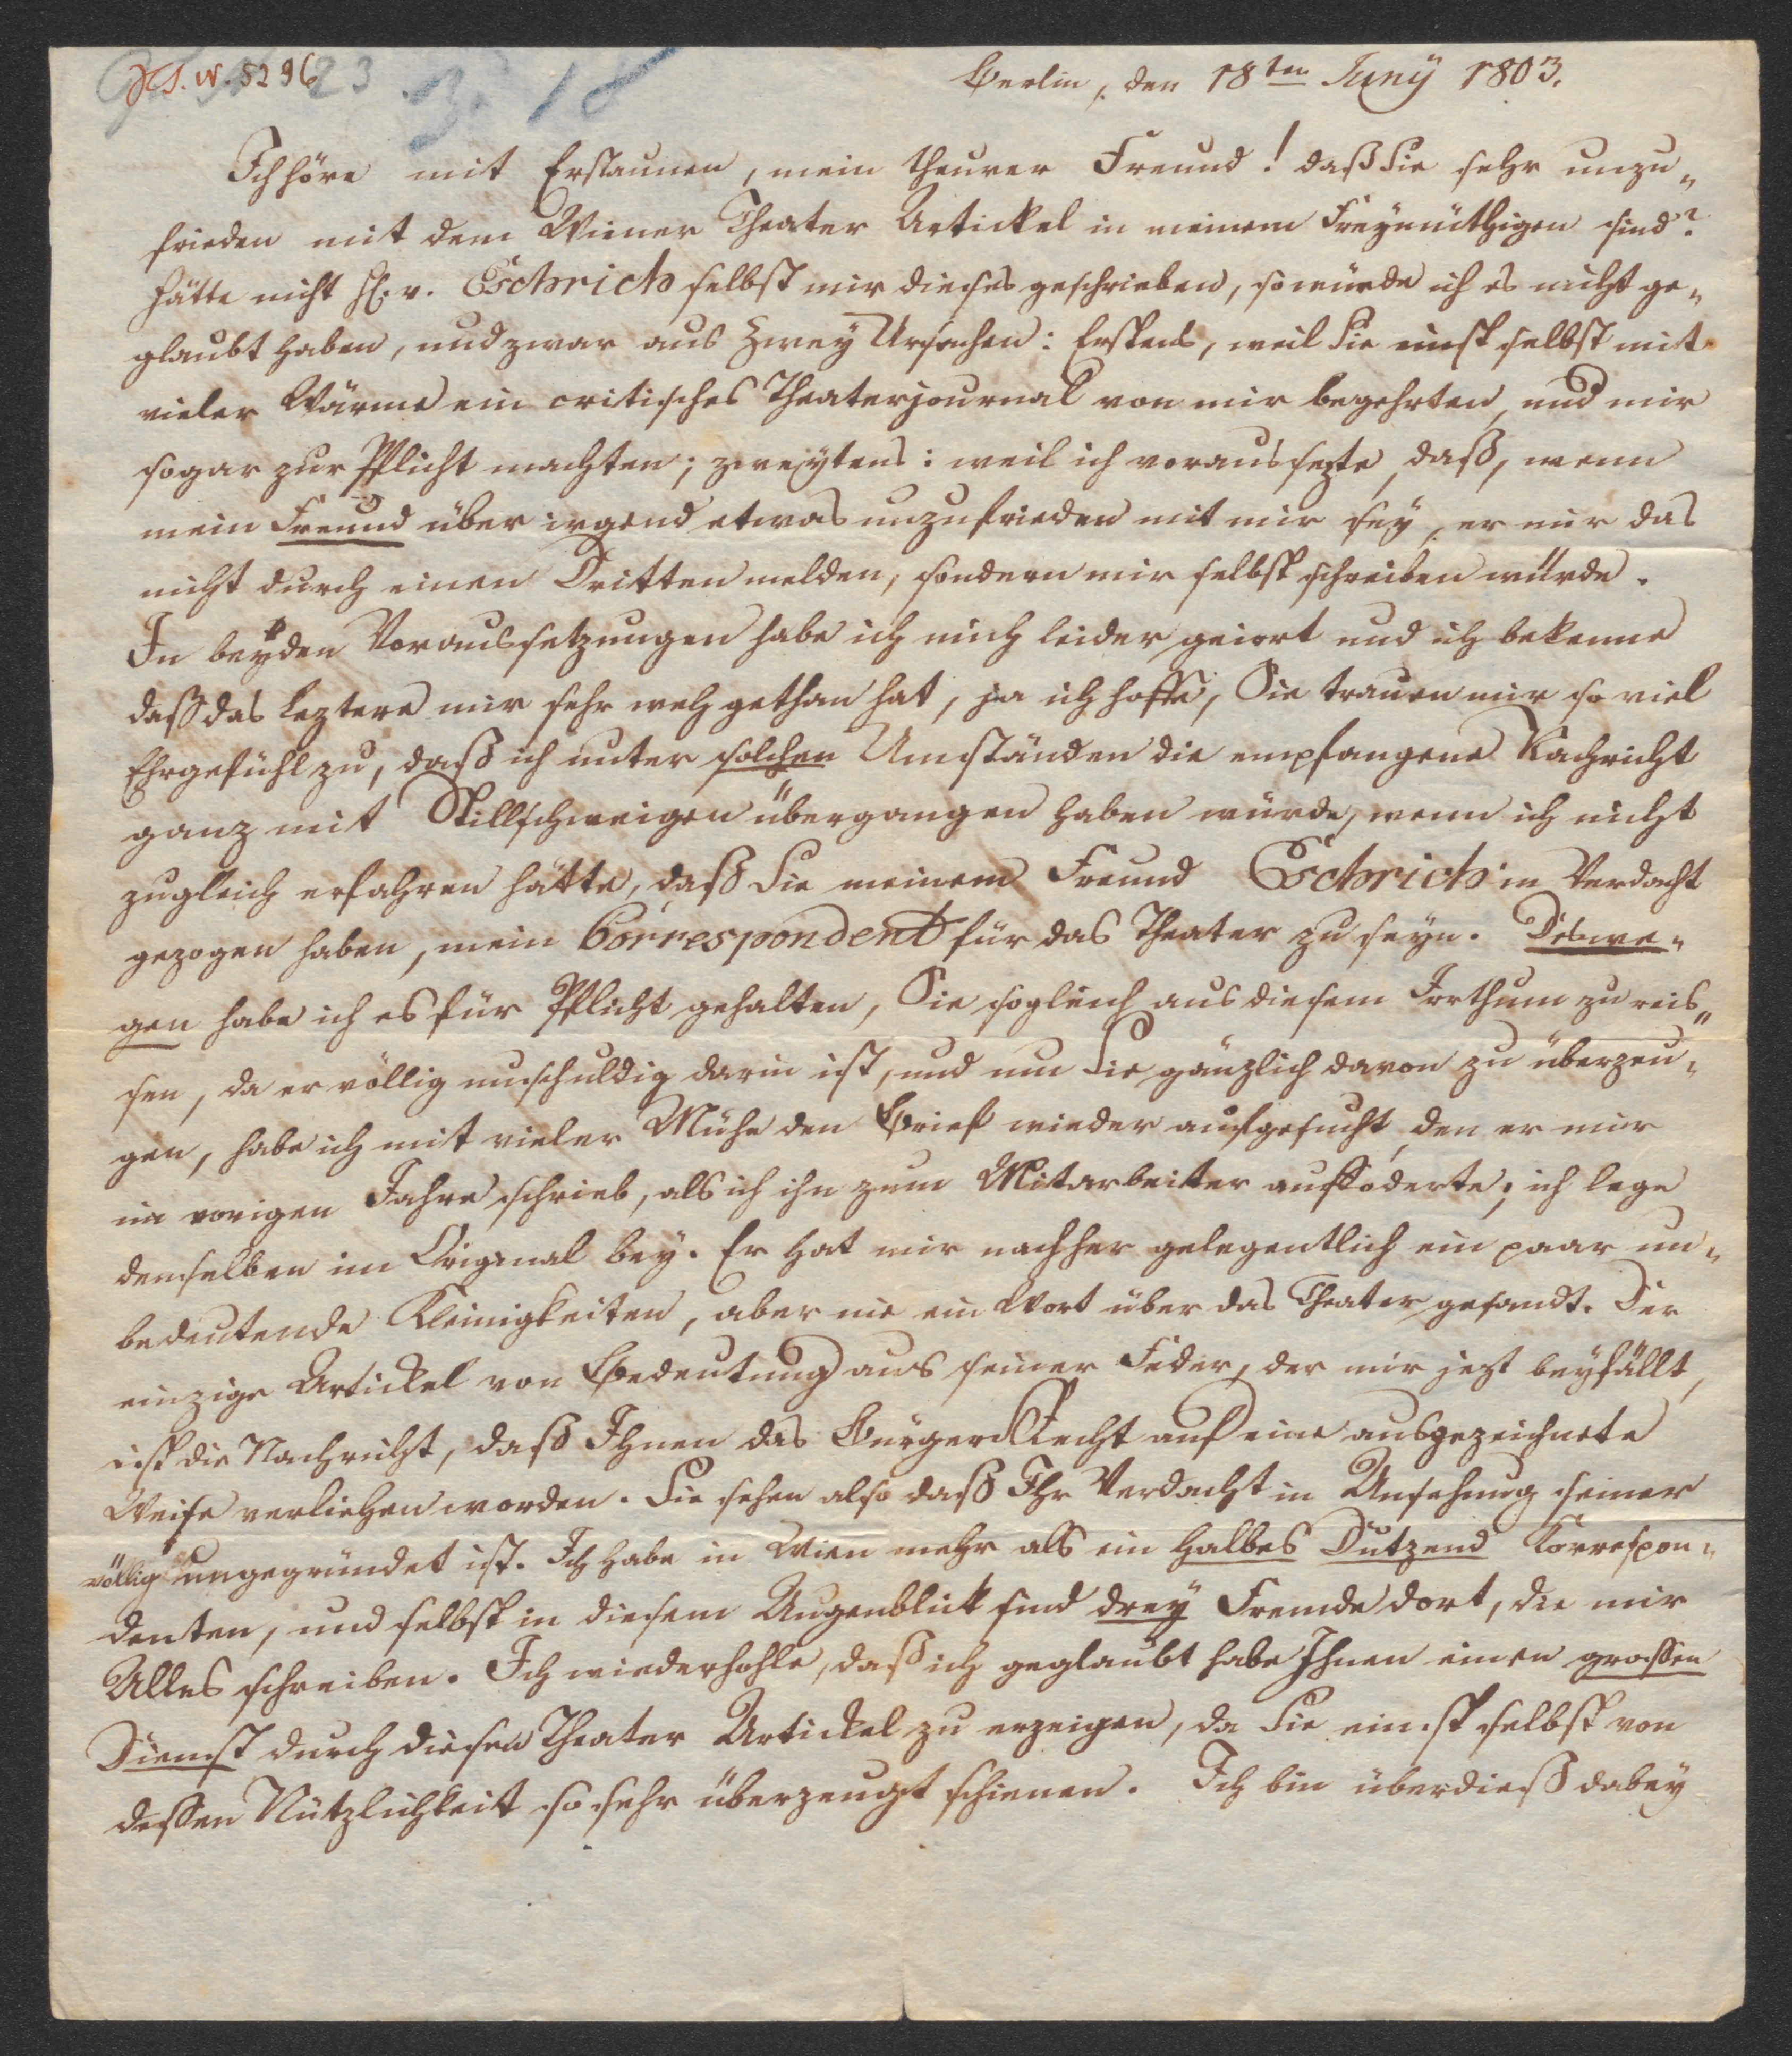 Hs. N. 5296
3. 18
Berlin, den 18ten Juny 1803.
Ich höre mit Erstaunen, mein theurer Freund! daß Sie sehr unzu„
frieden mit dem Wiener Theater Artickel in meinem Freymüthigen sind?
hätte nicht H. v. Eschrich selbst mir dieses geschrieben, so würde ich es nicht ge„
glaubt haben, und zwar aus zwey Ursachen: Erstens, weil Sie einst selbst mit
vieler Wärme ein critisches Theaterjournal von mir begehrten, und mir
sogar zur Pflicht machten; zweytens: weil ich voraussezte, daß, wenn
mein Freund über irgend etwas unzufrieden mit mir sey, er mir das
nicht durch einen Dritten melden, sondern mir selbst schreiben würde.
In beyden Voraussetzungen habe ich mich leider geirrt und ich bekenne
daß das leztere mir sehr weh gethan hat, ja ich hoffe, Sie trauen mir so viel
Ehrgefühl zu, daß ich unter solchen Umständen die empfangene Nachricht
ganz mit Stillschweigen übergangen haben würde, wenn ich nicht
zugleich erfahren hätte, daß Sie meinem Freund Eschrich in Verdacht
gezogen haben, mein Correspondent für das Theater zu seyn. Deswe„
gen habe ich es für Pflicht gehalten, Sie sogleich aus diesem Irrthum zu reis„
sen, da er völlig unschuldig darin ist, und um Sie gänzlich davon zu überzeu„
gen, habe ich mit vieler Mühe den Brief wieder aufgesucht, den er mir
im vorigen Jahre schrieb, als ich ihn zum Mitarbeiter auffoderte; ich lege
denselben im Original bey. Er hat mir nachher gelegentlich ein paar un„
bedeutende Kleinigkeiten, aber nie ein Wort über das Theater gesandt. Der
einzige Artickel von Bedeutung aus seiner Feder, der mir jezt beyfällt,
ist die Nachricht, daß Ihnen das Bürger Recht auf eine ausgezeichnete
Weise verliehen worden. Sie sehen also daß Ihr Verdacht in Ansehung seiner
völlig ungegründet ist. Ich habe in Wien mehr als ein halbes Dutzend Korrespon„
denten, und selbst in diesem Augenblick sind drey Fremde dort, die mir
Alles schreiben. Ich wiederhohle, daß ich geglaubt habe Ihnen einen grossen
Dienst durch diesen Theater Artickel zu erzeigen, da Sie einst selbst von
dessen Nützlichkeit so sehr überzeugt schienen. Ich bin überdieß dabey